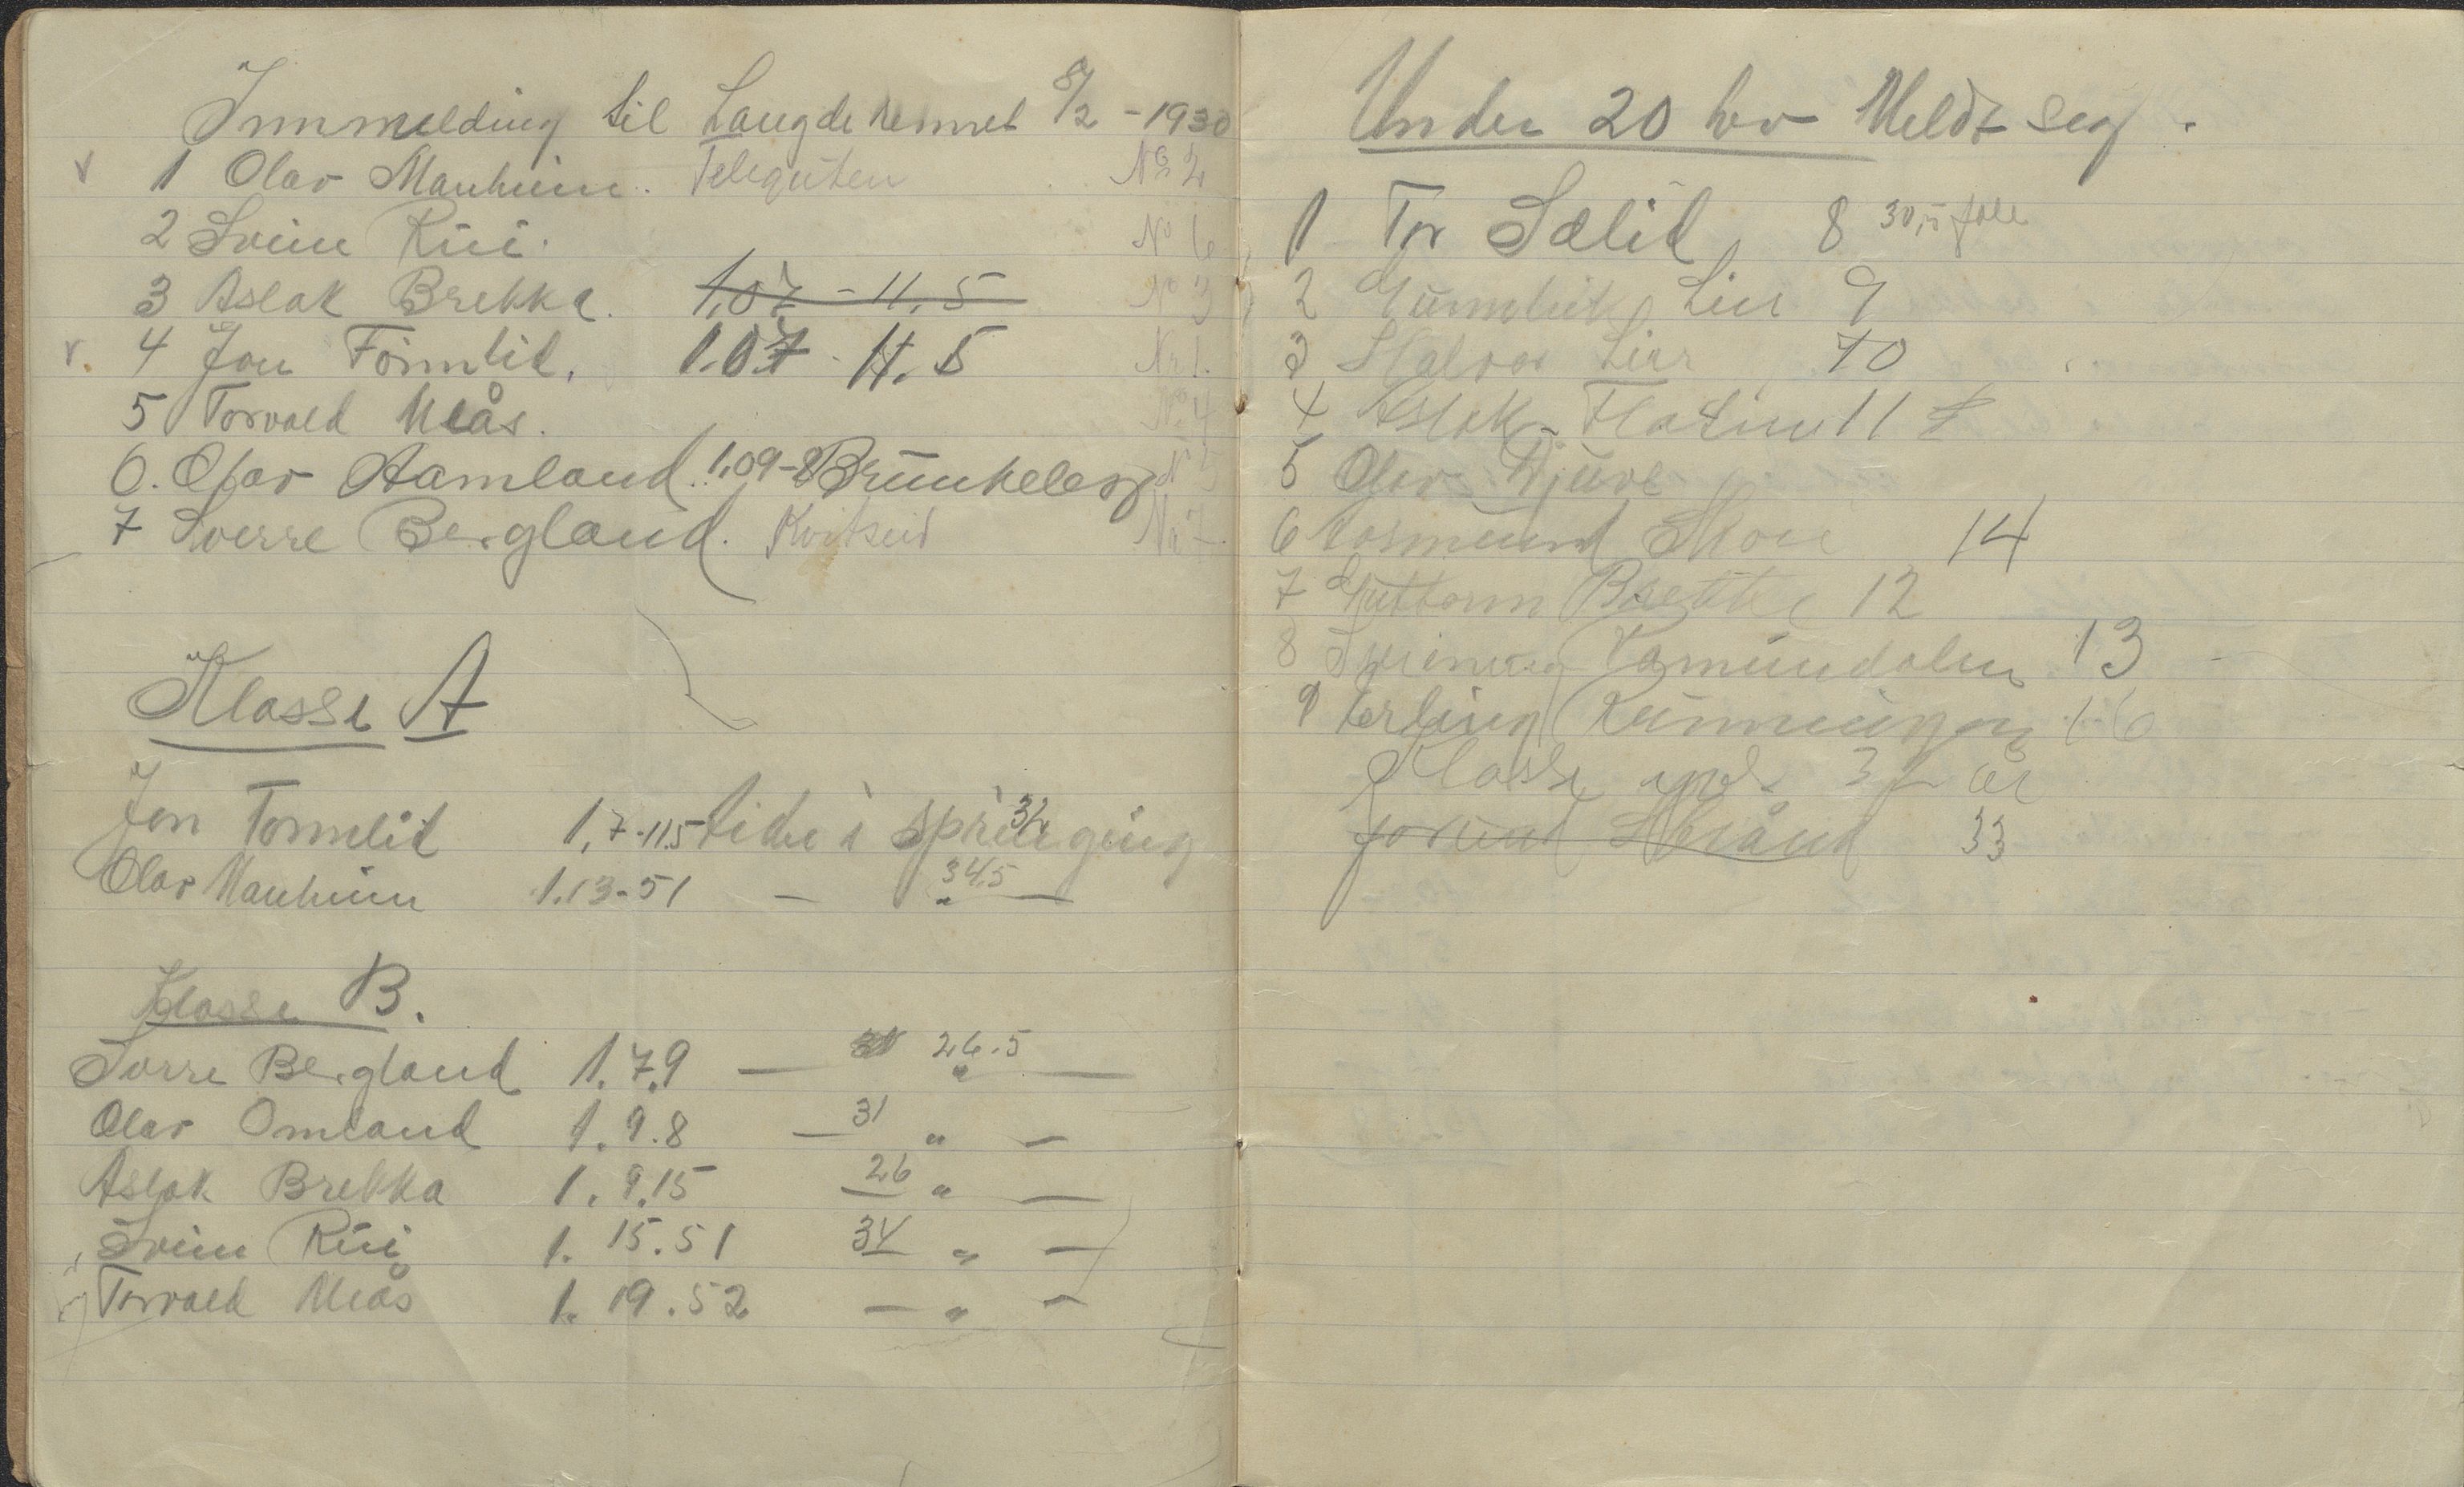 Innmelding til Langderennet 8/2 - 1930
v 1 Olav Manheim. Teleguten No 2
2 Svein Rui. No 6
3 Aslak Brekka. 1.07 - 11.5 No 3
v. 4 Jon Tönnlid. 1.07 - 11.5 Nr 1.
5 Torvald Meås. No 4
6. Olav Aamland. 1.09-8 Brunkeberg
7 Sverre Bergland. Kvitseid No 7
Klasse A
Jon Tonnlid 1.7-11.5 tider i springing
Olav Manheim 1.13-51 — 34.5 " —
Klasse B.
Sverre Bergland 1.7.9 — 26.5 " —
Olav Omland 1.9.8 — 31 " —
Aslak Brekka 1.9.15 26 " —
Svein Rui 1.15.51 34 " —
Torvald Meås 1.19.52 — " —
Under 20 hev Meldt seg.
1 Tor Sælid 8 30,5 fall
2 Gunnleik Lier 9
3 Halvor Lier 10
4 Aslak Flatin 11
5 Olav Djuve
6 Aasmund Moen 14
7 Guttorm 12
8 Sveinung Vamundalen 13
9 Erling Rünningen 16
Klasse 32 år
Strånd 33